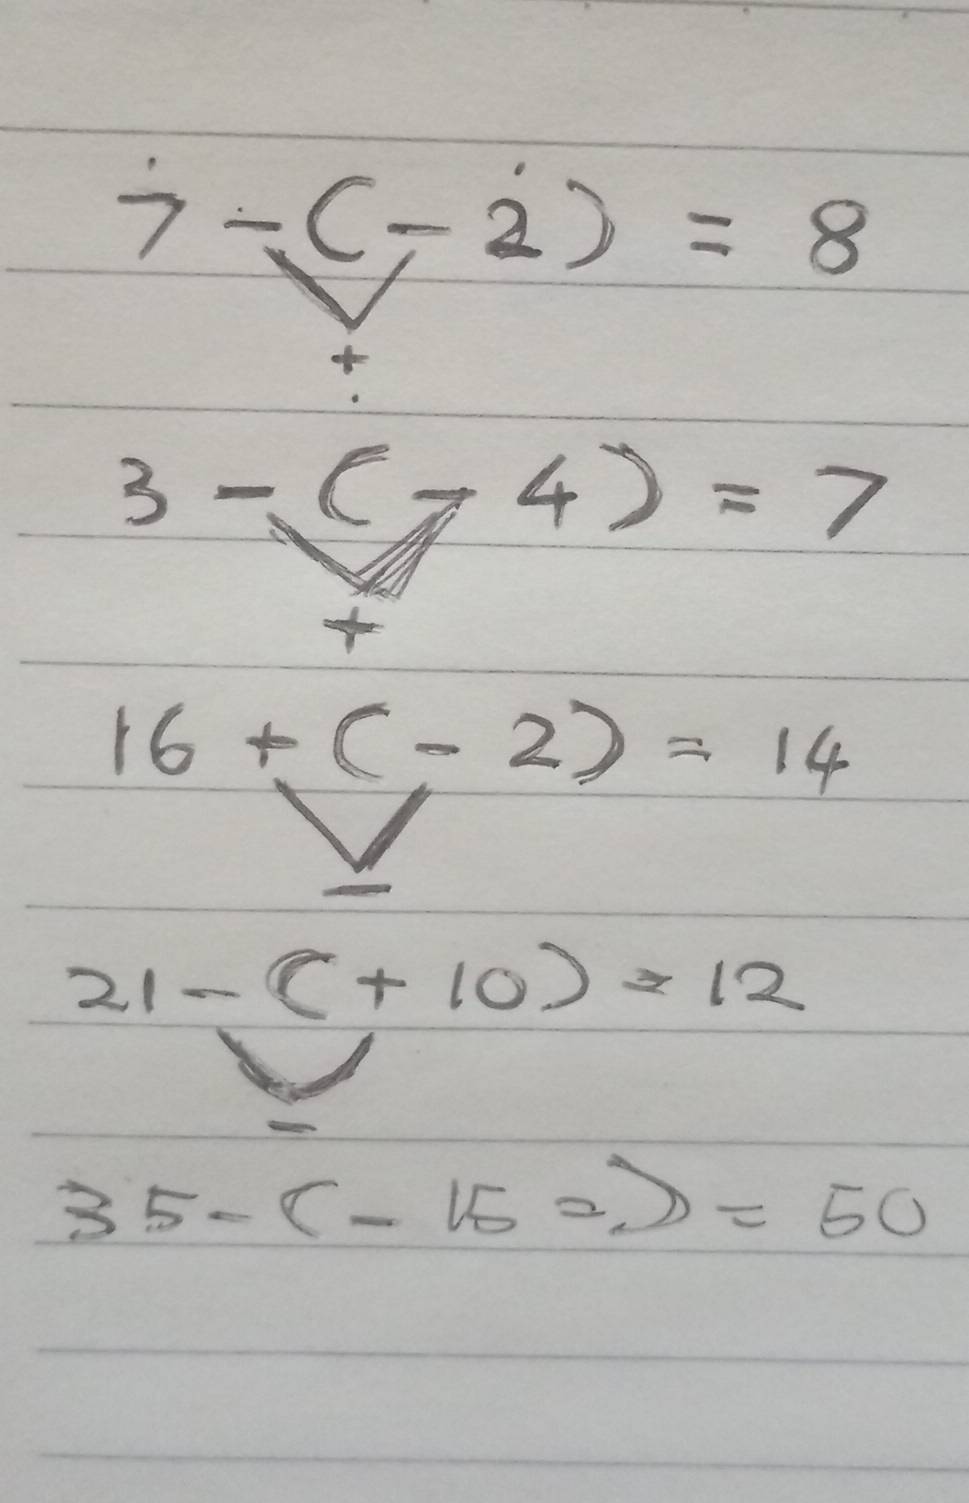 7 - (- 2) = 8
+
3 - (- 4) = 7
+
16 + (- 2) = 14
-
21 - (+ 10) = 12
-
35 - (- 15 =) = 50